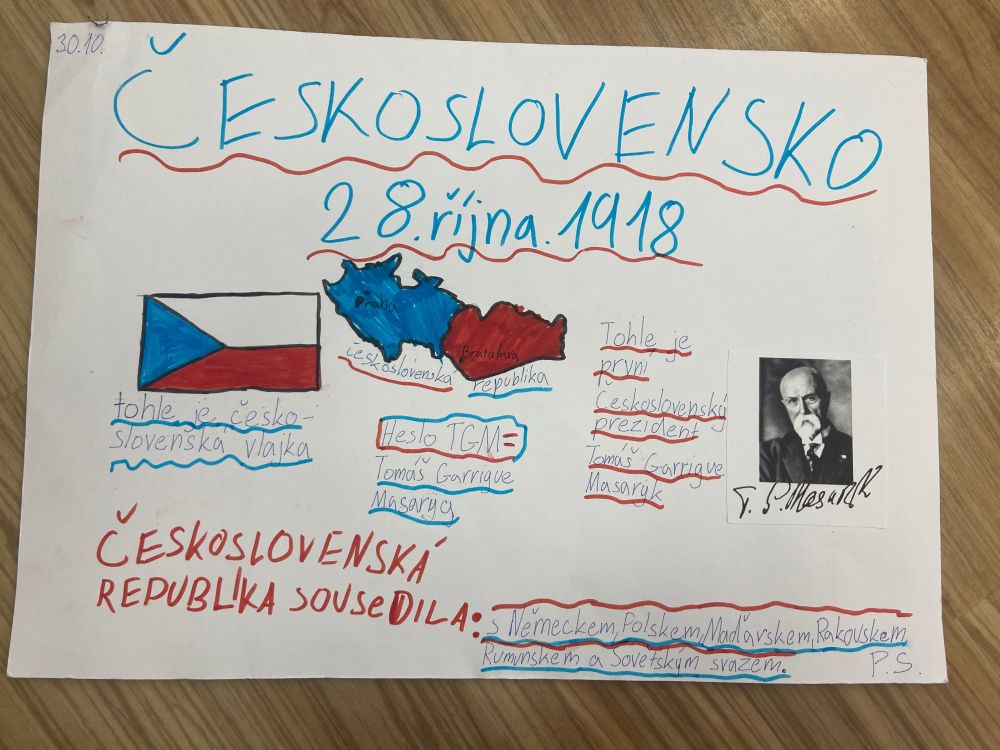 30.10.
ČESKOSLOVENSKO
28.října.1918
Praha
Bratislava
československá republika
tohle je česko-
slovenská vlajka
Heslo TGM=
Tomáš Garrigue
Masaryg
Tohle je
první
Československý
prezident
Tomáš Garrigue
Masaryk
T. G. Masaryk
ČESKOSLOVENSKÁ
REPUBLIKA SOUSEDILA:
s Německem, Polskem, Maďarskem, Rakouskem,
Rumunskem a Sovětským svazem.
P.S.